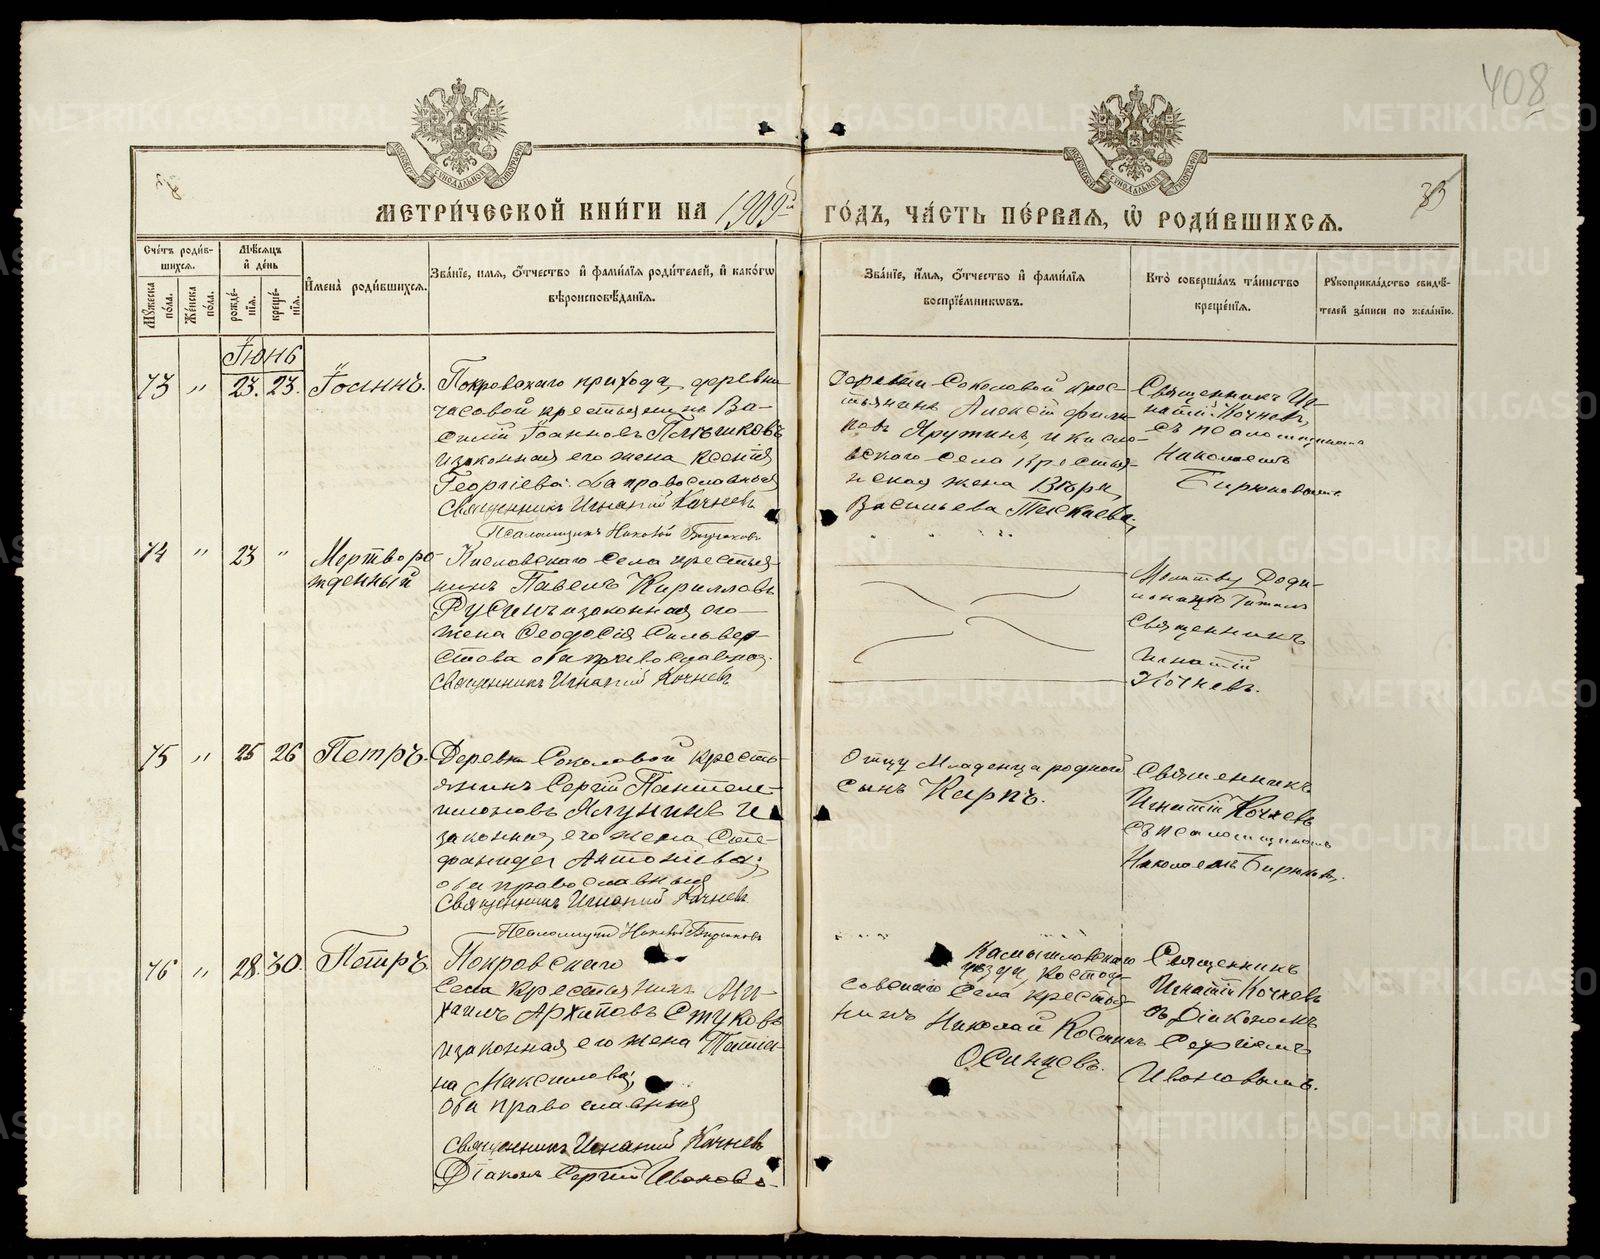 408
МЕТРИ́ЧЕСКОЙ КНИ́ГИ НА 1909й ГО́ДЪ, ЧА́СТЬ ПЕ́РВАЯ, Ѿ РОДИ́ВШИХСЯ.
33
Сче́тъ роди́в-
шихся.
Мѣ́сяцъ
и҆ де́нь
И҆мена̀ роди́вшихся.
Зва́нїе, имя, ѻ҆́тчество и҆ фами́лїя роди́телей, и҆ како́гѡ
вѣроисповѣ́данїя.
Зва́нїе, и҆́мя, ѻ҆́тчество и҆ фами́лїя
воспрїе́мникѡвъ.
Кто̀ соверша́лъ та́инство
креще́нїя.
Рꙋкоприкла́дство свидѣ́-
телей за́писи по жела́нїю.
Мꙋ́жеска
по́ла.
Же́нска
по́ла.
рожде́-
нїя.
креще́-
нїя.
Іюнь
73 " 23. 23. Іоаннъ.
Покровскаго прихода, деревни
Часовой крестьянинъ Ва-
силій Іоанновъ
и законная его жена Ксенія
Георгіева: оба православные
Священникъ Игнатій Кочневъ
Псаломщикъ Николай Бирюковъ
деревни Соколовой крес-
тьянинъ Алексій Филип-
повъ Ярутинъ, и Кисло-
вского села крестья-
нская жена Вѣра
Васильева
Священникъ Иг-
натій Кочневъ,
съ псаломщикомъ
Николаемъ
Бирюковымъ
74 " 23 " Мертворо-
жденный
Кисловскаго села крестья-
нинъ Павелъ Кирилловъ
Русинъ и законная его
жена Ѳеодосія Сильвер-
стова оба православные.
Священникъ Игнатій Кочневъ
Молитву роди-
читалъ
Священникъ
Игнатій
Кочневъ.
75 " 25 26 Петръ.
Деревни Соколовой кресть-
янинъ Сергій Пантеле-
имоновъ Ялунинъ и
законная его жена Сте-
фанида Антоніева;
оба православныя
Священникъ Игнатій Кочневъ
Псаломщикъ Николай Бирюковъ
Отцу младенца родной
сынъ Карпъ.
Священникъ
Игнатій Кочневъ
съ псаломщикомъ
Николаемъ Бирюков.
76 " 28. 30. Петръ.
Покровскаго
села крестьянинъ Ми-
хаилъ Архиповъ Стуковъ
и законная его жена Татіа-
на Максимова;
оба православныя
Священникъ Игнатій Кочневъ
Діаконъ Сергій Ивановъ
Камышловскаго
уѣзда,
села крестья-
нинъ Николай
Осинцевъ.
Священникъ
Игнатій Кочневъ
съ Діакономъ
Сергіемъ
Ивановымъ.
METRIKI.GASO-URAL.RU